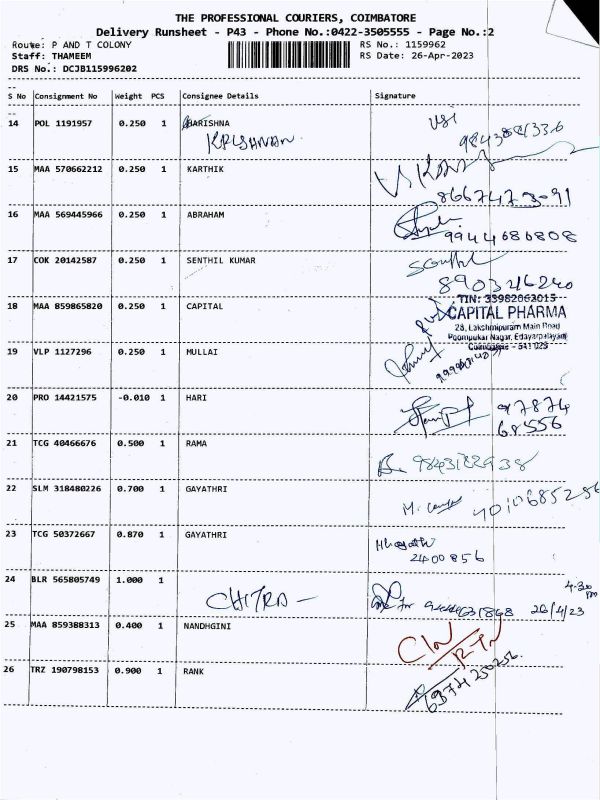 THE PROFESSIONAL COURIERS, COIMBATORE
Delivery Runsheet - P43 - Phone No.:0422-3505555 - Page No.:2
Route: P AND T COLONY RS No.: 1159962
Staff: THAMEEM RS Date: 26-Apr-2023
DRS No.: DCJB115996202
S No Consignment No Weight PCS Consignee Details Signature
14 POL 1191957 0.250 1 HARISHNA
KRISHNAN
15 MAA 570662212 0.250 1 KARTHIK
16 MAA 569445966 0.250 1 ABRAHAM
9944686808
17 COK 20142587 0.250 1 SENTHIL KUMAR
8903216240
18 MAA 859865820 0.250 1 CAPITAL
TIN: 33982062015
CAPITAL PHARMA
28, Lakshmipuram Main Road
Poompukar Nagar, Edayarpalayam
Coimbatore - 641 025
19 VLP 1127296 0.250 1 MULLAI
20 PRO 14421575 -0.010 1 HARI
97874
68556
21 TCG 40466676 0.500 1 RAMA
22 SLM 318480226 0.700 1 GAYATHRI
23 TCG 50372667 0.870 1 GAYATHRI
2400856
24 BLR 565805749 1.000 1
CHITRA - 26/4/23
25 MAA 859388313 0.400 1 NANDHGINI
26 TRZ 190798153 0.900 1 RANK
6374250256